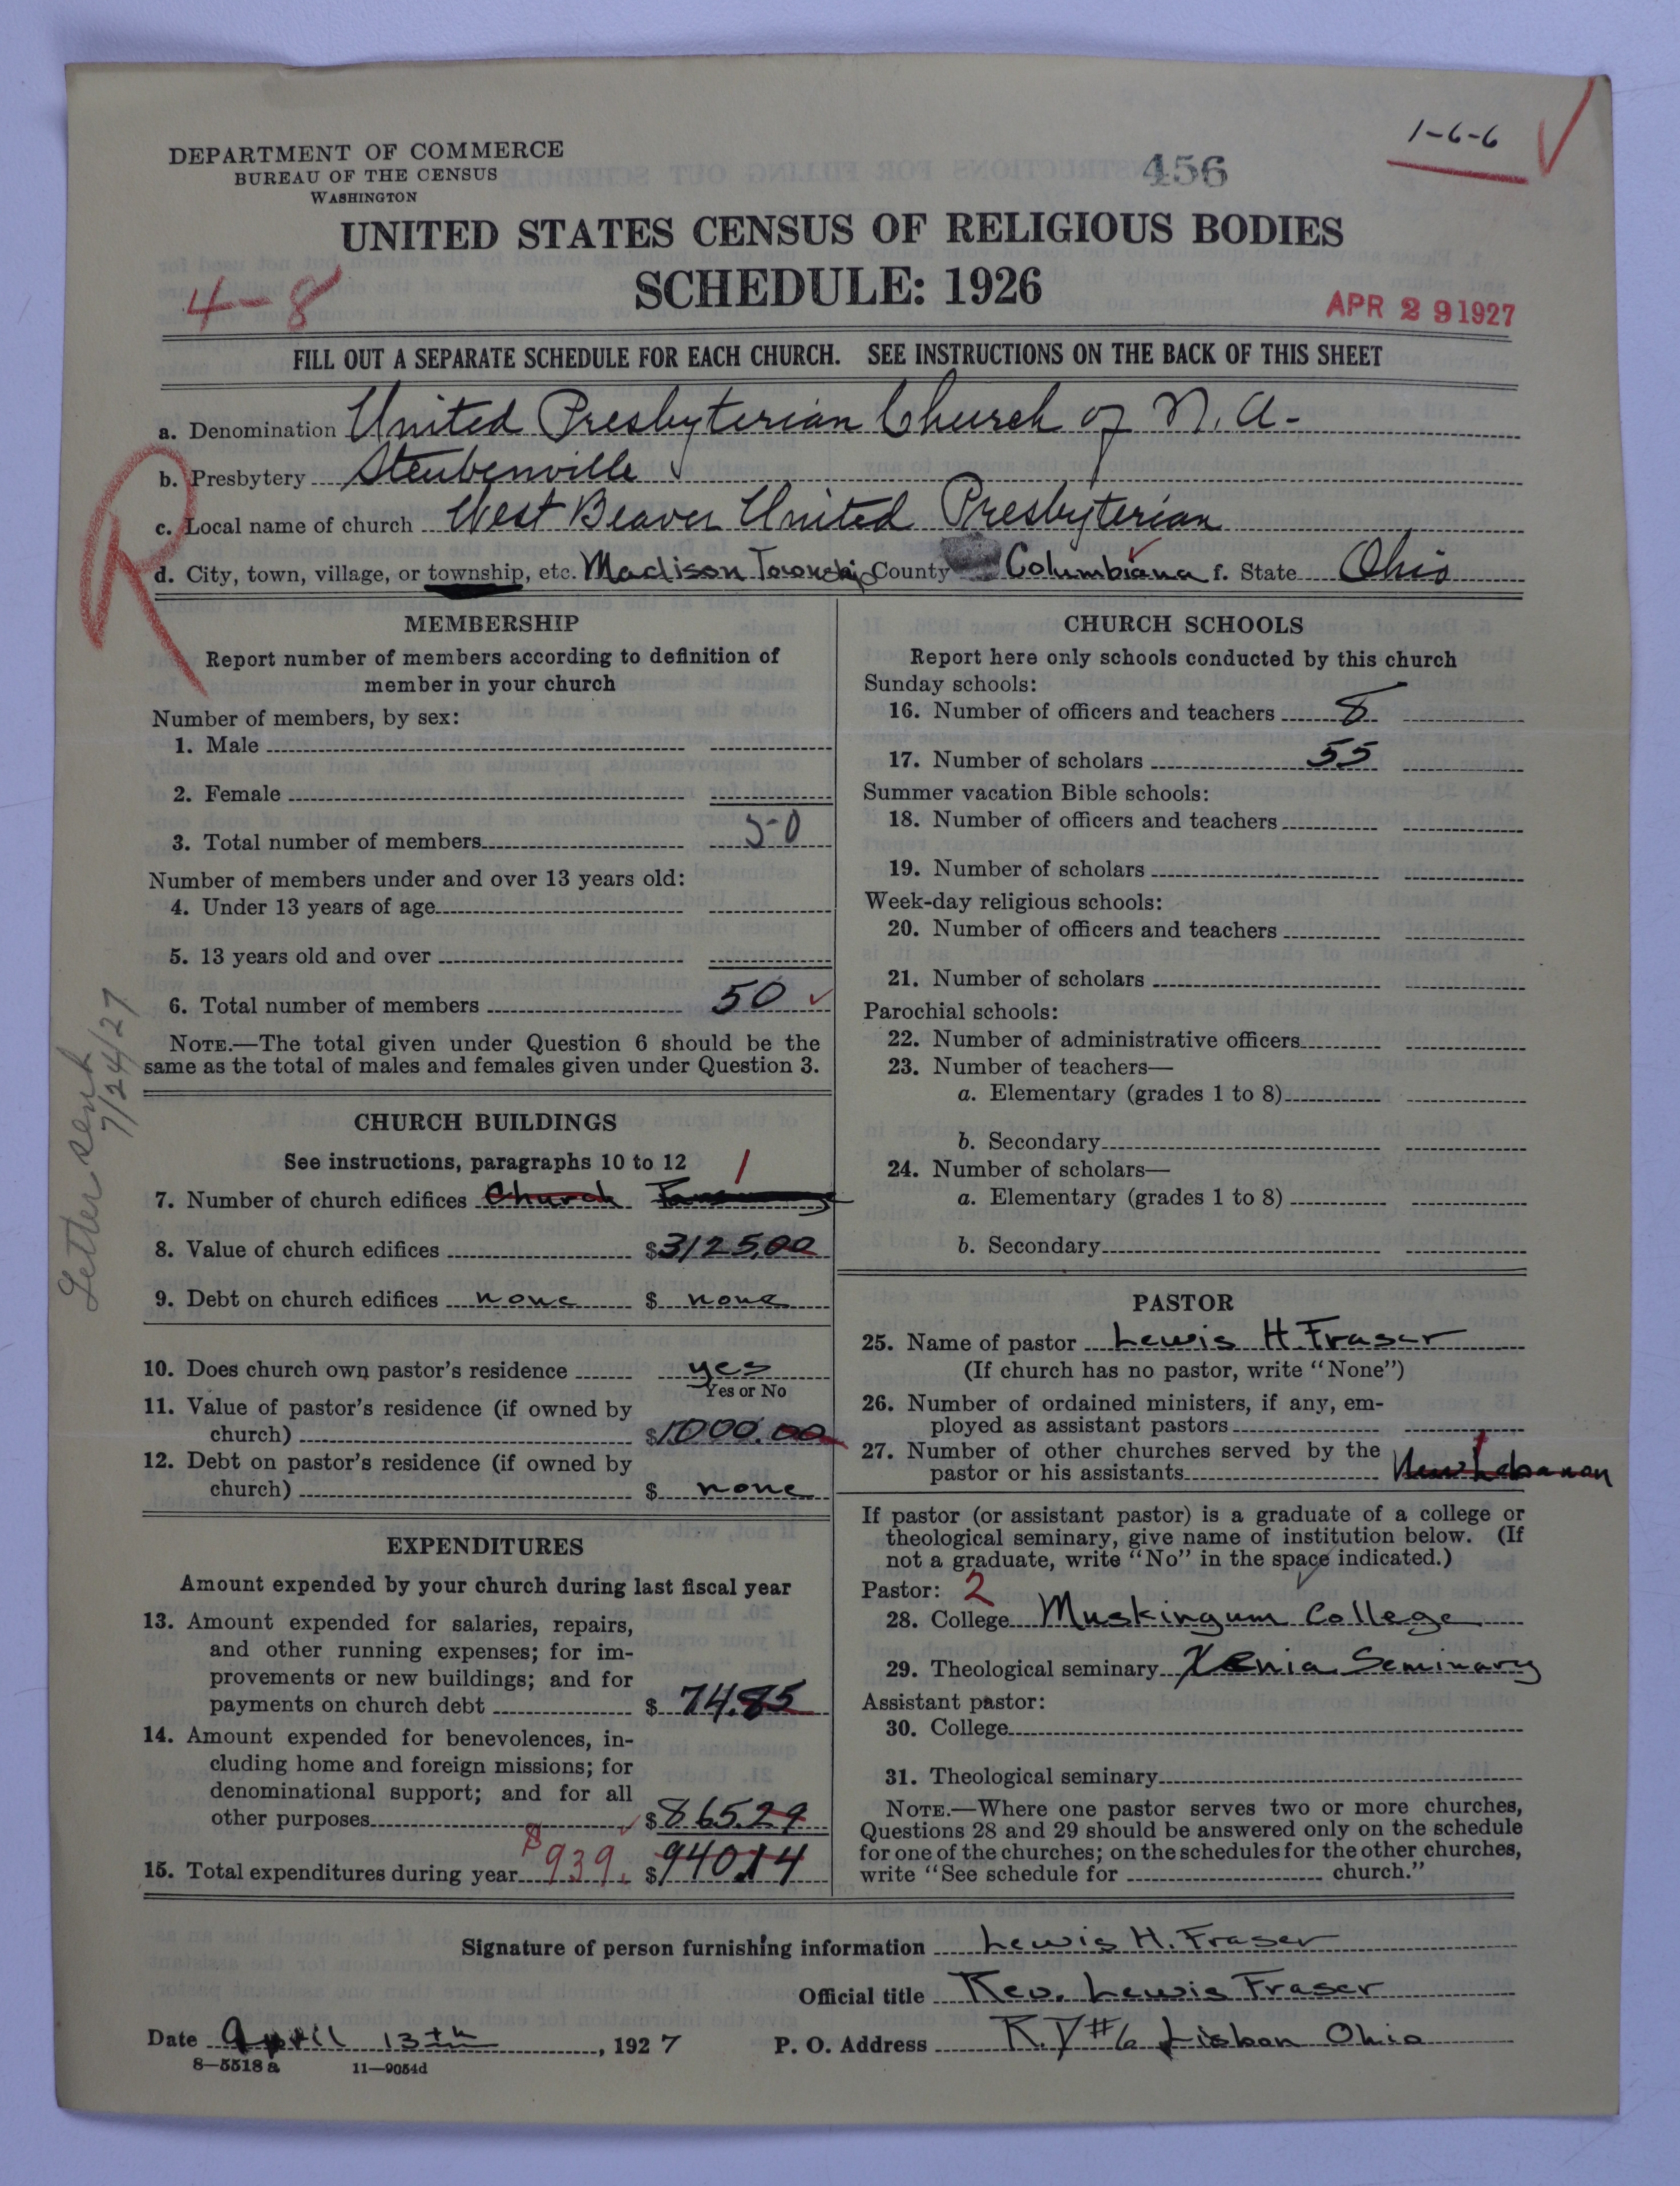 1-6-6
DEPARTMENT OF COMMERCE
BUREAU OF THE CENSUS
WASHINGTON
456
UNITED STATES CENSUS OF RELIGIOUS BODIES
SCHEDULE: 1926
4-8
APR 29 1927
FILL OUT A SEPARATE SCHEDULE FOR EACH CHURCH. SEE INSTRUCTIONS ON THE BACK OF THIS SHEET
a. Denomination United Presbyterian Church of N. A.
b. Presbytery Steubenville
c. Local name of church West Beaver United Presbyterian
d. City, town, village, or township, etc. Madison Township County Columbiana f. State Ohio
R
MEMBERSHIP
Report number of members according to definition of
member in your church
Number of members, by sex:
1. Male
2. Female
3. Total number of members 50
Number of members under and over 13 years old:
4. Under 13 years of age
5. 13 years old and over
6. Total number of members 50
NOTE.—The total given under Question 6 should be the
same as the total of males and females given under Question 3.
Letter sent
7/24/27
CHURCH BUILDINGS
See instructions, paragraphs 10 to 12
7. Number of church edifices Church 1
8. Value of church edifices $3125.00
9. Debt on church edifices none $ none
10. Does church own pastor's residence yes
Yes or No
11. Value of pastor's residence (if owned by
church) $1000.00
12. Debt on pastor's residence (if owned by
church) $ none
EXPENDITURES
Amount expended by your church during last fiscal year
13. Amount expended for salaries, repairs,
and other running expenses; for im-
provements or new buildings; and for
payments on church debt $ 74.85
14. Amount expended for benevolences, in-
cluding home and foreign missions; for
denominational support; and for all
other purposes $865.29
15. Total expenditures during year $939. $940.14
CHURCH SCHOOLS
Report here only schools conducted by this church
Sunday schools:
16. Number of officers and teachers 8
17. Number of scholars 55
Summer vacation Bible schools:
18. Number of officers and teachers
19. Number of scholars
Week-day religious schools:
20. Number of officers and teachers
21. Number of scholars
Parochial schools:
22. Number of administrative officers
23. Number of teachers—
a. Elementary (grades 1 to 8)
b. Secondary
24. Number of scholars—
a. Elementary (grades 1 to 8)
b. Secondary
PASTOR
25. Name of pastor Lewis H. Fraser
(If church has no pastor, write "None")
26. Number of ordained ministers, if any, em-
ployed as assistant pastors
27. Number of other churches served by the
pastor or his assistants New Lebanon 1
If pastor (or assistant pastor) is a graduate of a college or
theological seminary, give name of institution below. (If
not a graduate, write "No" in the space indicated.)
Pastor: 2
28. College Muskingum College
29. Theological seminary Xenia Seminary
Assistant pastor:
30. College
31. Theological seminary
NOTE.—Where one pastor serves two or more churches,
Questions 28 and 29 should be answered only on the schedule
for one of the churches; on the schedules for the other churches,
write "See schedule for church."
Signature of person furnishing information Lewis H. Fraser
Official title Rev. Lewis Fraser
Date April 13th, 1927 P. O. Address R.D #6 Lisbon Ohio
8—5518 a 11—9054d